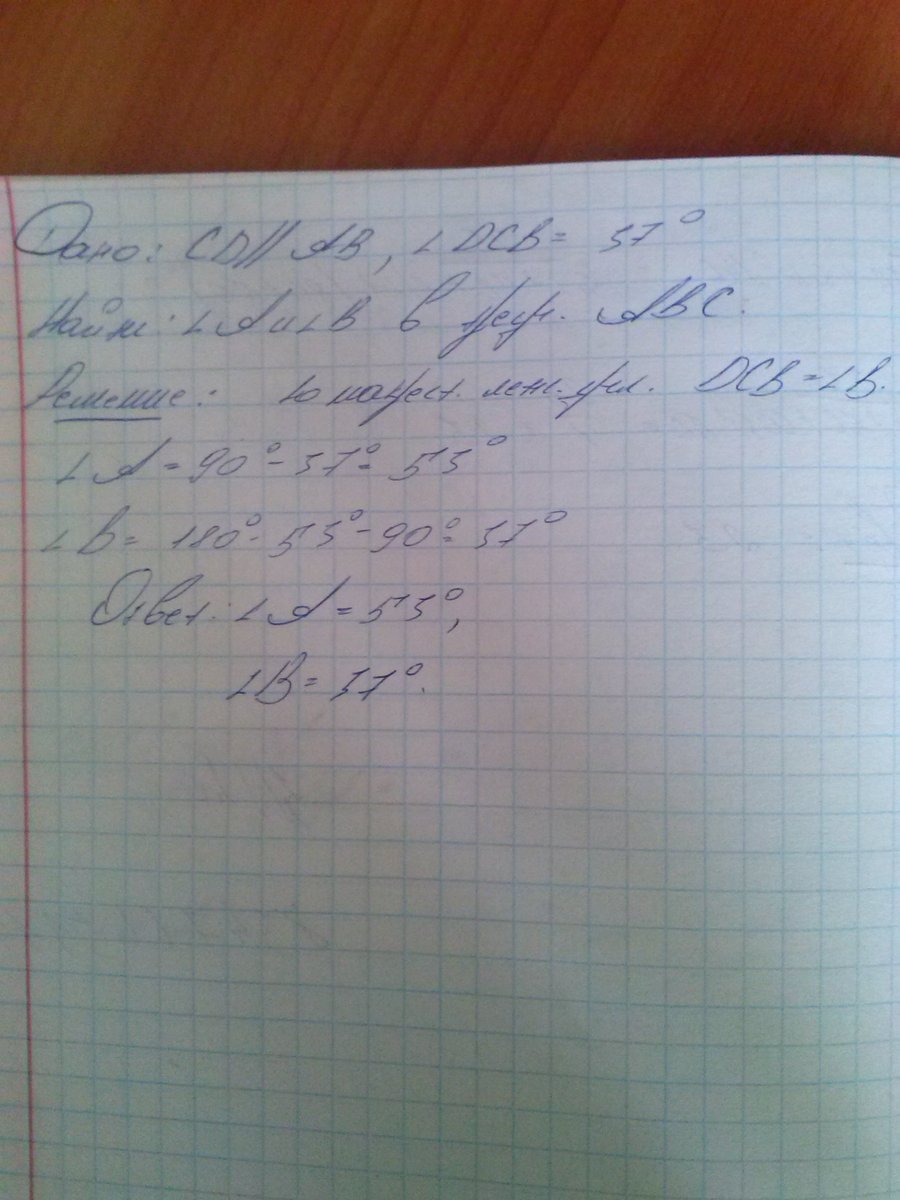 Дано: CD || AB, ∠DCB = 37°
Найти: ∠A и ∠B в треуг. ABC.
Решение: накрест. леж. угл. DCB = ∠B.
∠A = 90° - 37° = 53°
∠B = 180° - 53° - 90° = 37°
Ответ: ∠A = 53°,
∠B = 37°.